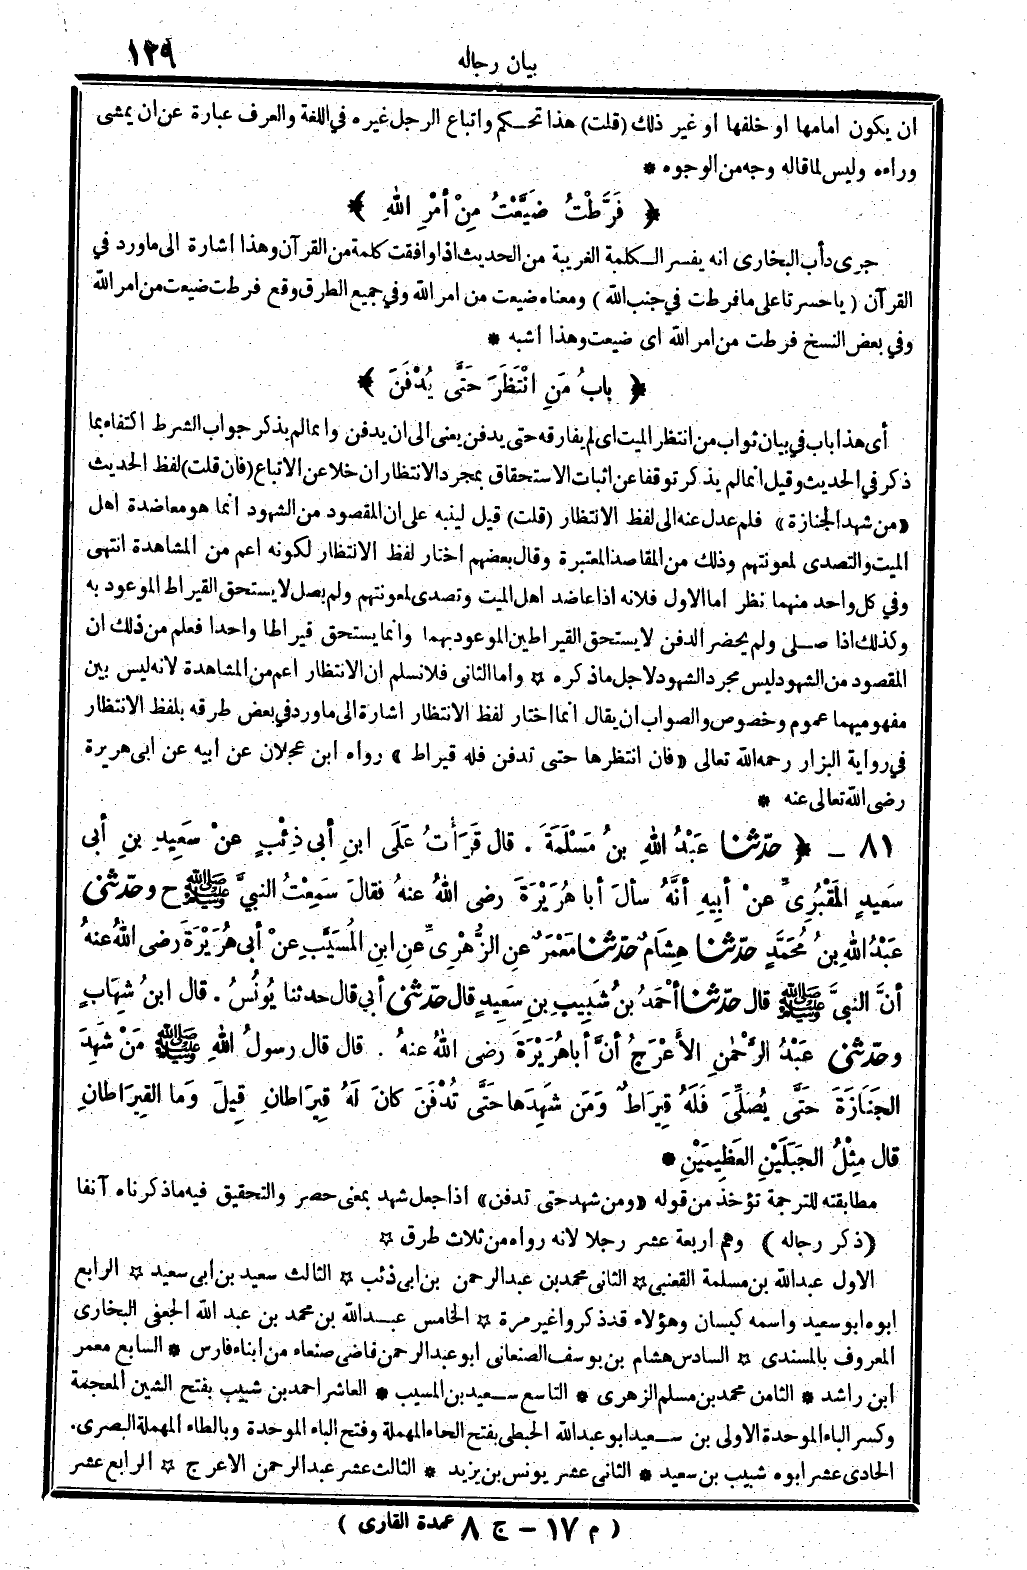 بيان رجاله
١٢٩
ان يكون امامها او خلفها او غير ذلك (قلت) هذا تحكم واتباع الرجل غيره في اللغة والعرف عبارة عن ان يمشى
وراءه وليس لما قاله وجه من الوجوه *
﴿ فَرَّطْتُ ضَيَّعْتُ مِنْ أمْرِ اللهِ ﴾
جرى دأب البخارى انه يفسر الكلمة الغريبة من الحديث اذا وافقت كلمة من القرآن وهذا اشارة الى ما ورد في
القرآن (يا حسرتا على ما فرطت في جنب الله) ومعناه ضيعت من امر الله وفي جميع الطرق وقع فرطت ضيعت من امر الله
وفي بعض النسخ فرطت من امر الله اى ضيعت وهذا اشبه *
﴿ بابُ مَنِ انْتَظَرَ حَتَّى يُدْفَنَ ﴾
أى هذا باب في بيان ثواب من انتظر الميت اى لم يفارقه حتى يدفن يعنى الى ان يدفن وانما لم يذكر جواب الشرط اكتفاء بما
ذكر في الحديث وقيل انما لم يذكر توقفا عن اثبات الاستحقاق بمجرد الانتظار ان خلا عن الاتباع (فان قلت) لفظ الحديث
«من شهد الجنازة» فلم عدل عنه الى لفظ الانتظار (قلت) قيل لينبه على ان المقصود من الشهود انما هو معاضدة اهل
الميت والتصدى لمعونتهم وذلك من المقاصد المعتبرة وقال بعضهم اختار لفظ الانتظار لكونه اعم من المشاهدة انتهى
وفي كل واحد منهما نظر اما الاول فلانه اذا عاضد اهل الميت وتصدى لمعونتهم ولم يصل لا يستحق القيراط الموعود به
وكذلك اذا صلى ولم يحضر الدفن لا يستحق القيراطين الموعود بهما وانما يستحق قيراطا واحدا فعلم من ذلك ان
المقصود من الشهود ليس مجرد الشهود لاجل ما ذكره ☆ واما الثانى فلا نسلم ان الانتظار اعم من المشاهدة لانه ليس بين
مفهوميهما عموم وخصوص والصواب ان يقال انما اختار لفظ الانتظار اشارة الى ما ورد في بعض طرقه بلفظ الانتظار
في رواية البزار رحمه الله تعالى «فان انتظرها حتى تدفن فله قيراط» رواه ابن عجلان عن ابيه عن ابى هريرة
رضى الله تعالى عنه *
٨١ - ﴿ حدّثنا عَبْدُ اللهِ بنُ مَسْلَمَةَ . قال قَرَأتُ عَلَى ابنِ أبي ذِئْبٍ عنْ سَعِيدِ بنِ أبى
سَعيدٍ المَقْبُرِىِّ عنْ أبيهِ أنَّهُ سألَ أبا هُرَيْرَةَ رضى اللهُ عنهُ فقالَ سَمِعْتُ النبيَّ ﷺ ح وحدّثنى
عَبْدُ اللهِ بنُ مُحَمَّدٍ حدّثنا هِشَامٌ حدّثنا مَعْمَرٌ عنِ الزُّهْرِىِّ عنِ ابنِ المُسَيَّبِ عنْ أبى هُرَيْرَةَ رضى اللهُ عنهُ
أنَّ النبيَّ ﷺ قال حدّثنا أحْمَدُ بنُ شَبِيبِ بنِ سَعِيدٍ قال حدّثنى أبي قال حدثنا يُونُسُ . قال ابنُ شِهَابٍ
وحدّثنى عَبْدُ الرَّحْمٰنِ الأعْرَجُ أنَّ أبا هُرَيْرَةَ رضى اللهُ عنهُ . قال قال رسولُ اللهِ ﷺ مَنْ شَهِدَ
الجَنَازَةَ حَتَّى يُصَلِّىَ فَلَهُ قِيرَاطٌ وَمَن شَهِدَها حَتَّى تُدْفَنَ كانَ لَهُ قِيرَاطانِ قِيلَ وَما القِيرَاطانِ
قال مِثْلُ الجَبَلَيْنِ العَظِيمَيْنِ *
مطابقته للترجمة تؤخذ من قوله «ومن شهد حتى تدفن» اذا جعل شهد بمعنى حضر والتحقيق فيه ما ذكرناه آنفا
(ذكر رجاله) وهم اربعة عشر رجلا لانه رواه من ثلاث طرق ☆
الاول عبد الله بن مسلمة القعنبى ☆ الثانى محمد بن عبد الرحمن بن ابى ذئب ☆ الثالث سعيد بن ابى سعيد ☆ الرابع
ابوه ابو سعيد واسمه كيسان وهؤلاء قد ذكروا غير مرة ☆ الخامس عبد الله بن محمد بن عبد الله الجعفى البخارى
المعروف بالمسندى ☆ السادس هشام بن يوسف الصنعانى ابو عبد الرحمن قاضى صنعاء من ابناء فارس * السابع معمر
ابن راشد * الثامن محمد بن مسلم الزهرى * التاسع سعيد بن المسيب * العاشر احمد بن شبيب بفتح الشين المعجمة
وكسر الباء الموحدة الاولى بن سعيد ابو عبد الله الحبطى بفتح الحاء المهملة وفتح الباء الموحدة وبالطاء المهملة البصرى.
الحادى عشر ابوه شبيب بن سعيد * الثانى عشر يونس بن يزيد * الثالث عشر عبد الرحمن الاعرج ☆ الرابع عشر
(م ١٧ - ج ٨ عمدة القارى)